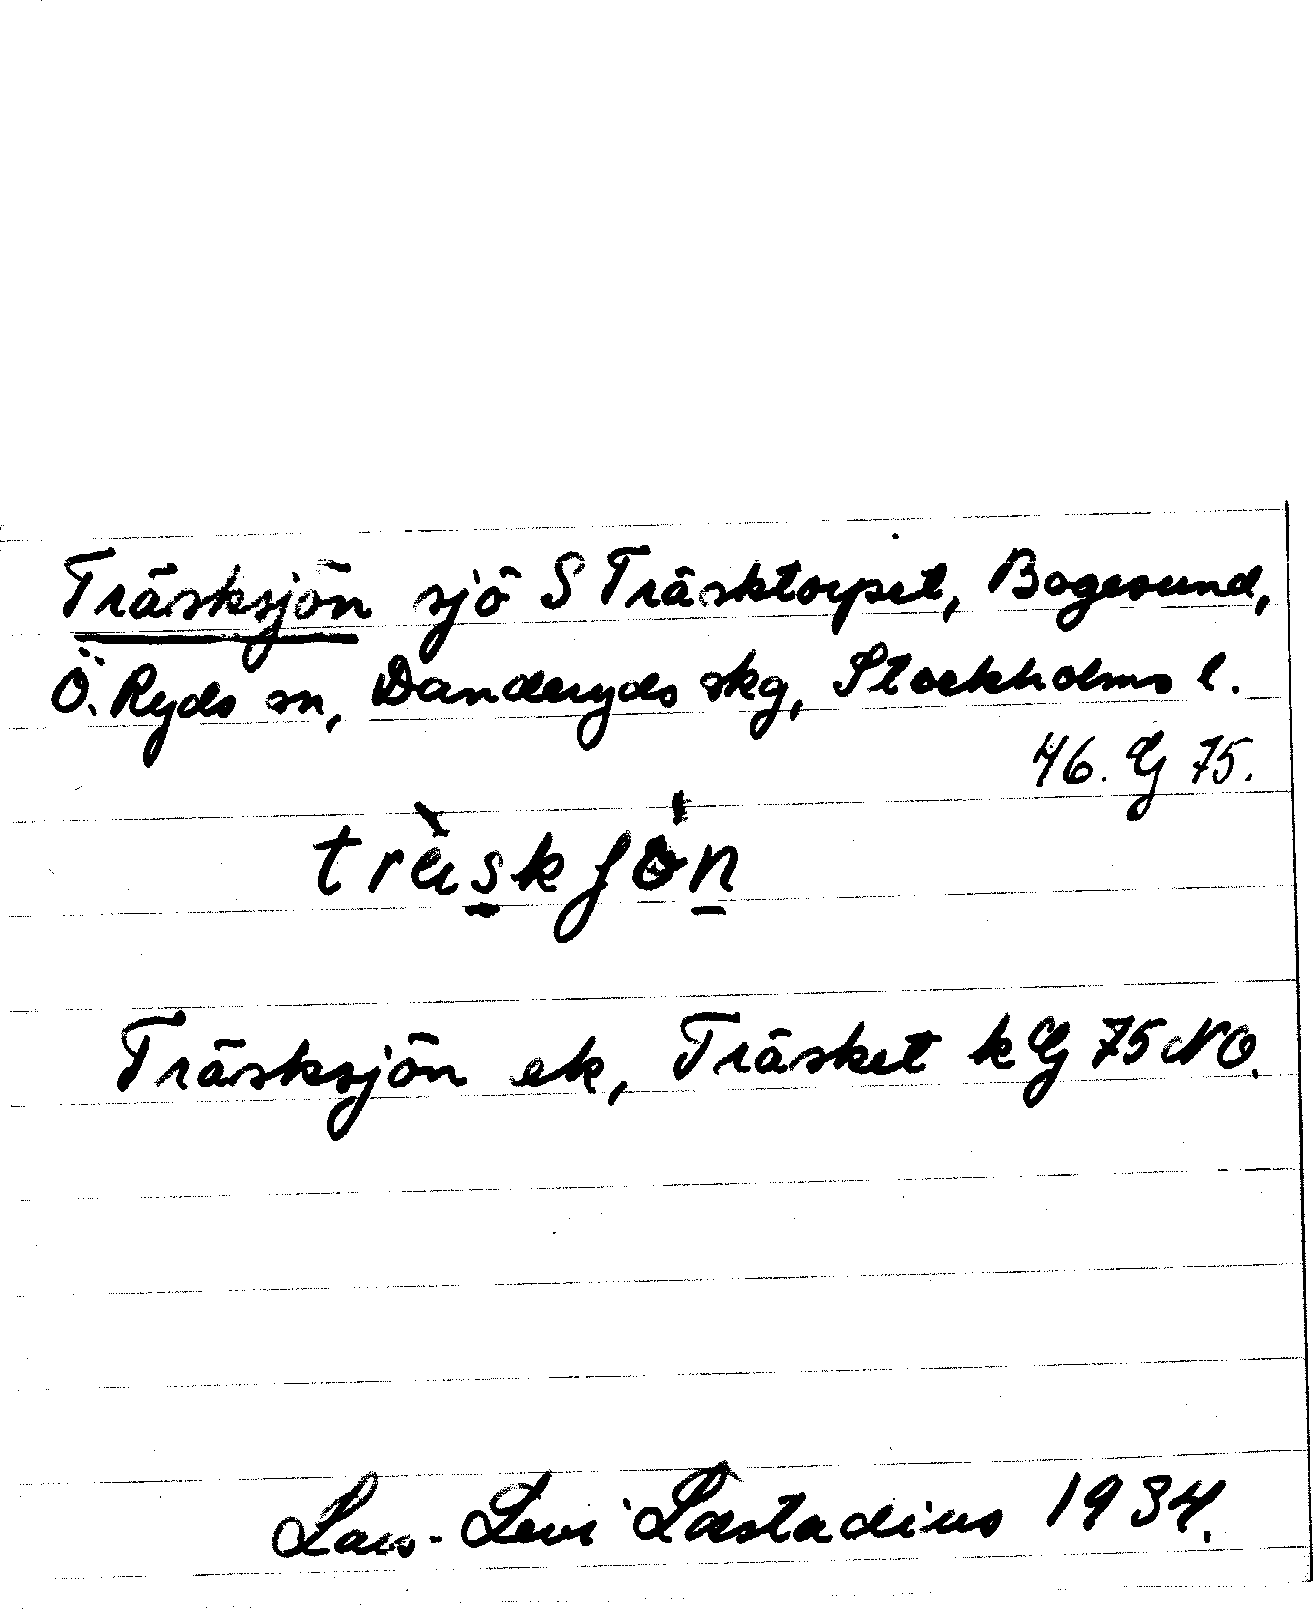 Träsksjön sjö S Träsktorpet, Bogesund,
Ö. Ryds sn, Danderyds skg, Stockholms l.
46. G 75.
Träsksjön ek, Träsket k G 75 NO.
Lars-Levi Læstadius 1934.